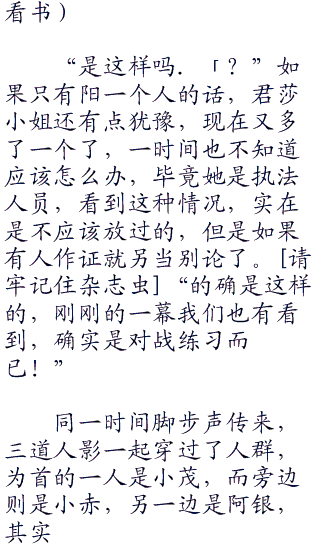 看书）
“是这样吗．「？”如
果只有阳一个人的话，君莎
小姐还有点犹豫，现在又多
了一个了，一时间也不知道
应该怎么办，毕竟她是执法
人员，看到这种情况，实在
是不应该放过的，但是如果
有人作证就另当别论了。[请
牢记住杂志虫]“的确是这样
的，刚刚的一幕我们也有看
到，确实是对战练习而
已！”
同一时间脚步声传来，
三道人影一起穿过了人群，
为首的一人是小茂，而旁边
则是小赤，另一边是阿银，
其实